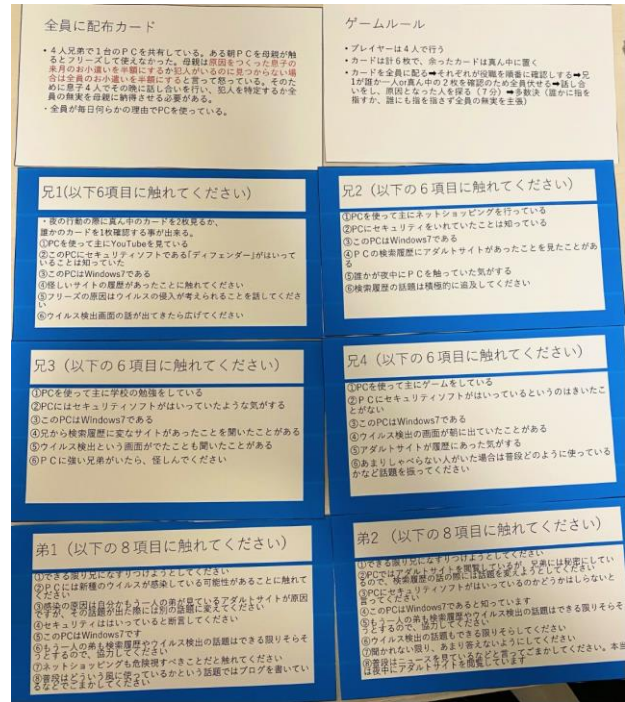 全員に配布カード
• 4人兄弟で1台のPCを共有している。ある朝PCを母親が触
るとフリーズして使えなかった。母親は原因をつくった息子の
来月のお小遣いを半額にするか犯人がいるのに見つからない場
合は全員のお小遣いを半額にすると言って怒っている。そのた
めに息子4人でその晩に話し合いを行い、犯人を特定するか全
員の無実を母親に納得させる必要がある。
・全員が毎日何らかの理由でPCを使っている。
ゲームルール
• プレイヤーは4人で行う
• カードは計6枚で、余ったカードは真ん中に置く
• カードを全員に配る➡それぞれが役職を順番に確認しする➡兄
1が誰か一人or真ん中の2枚を確認のため全員伏せる➡話し合
いをし、原因となった人を探る（7分）➡多数決（誰かに指を
指すか、誰にも指を指さず全員の無実を主張）
兄1(以下6項目に触れてください)
・夜の行動の際に真ん中のカードを2枚見るか、
誰かのカードを1枚確認する事が出来る。
①PCを使って主にYouTubeを見ている
②このPCにセキュリティソフトである「ディフェンダー」がはいって
いることは知っていた
③このPCはWindows7である
④怪しいサイトの履歴があったことに触れてください
⑤フリーズの原因はウイルスの侵入が考えられることを話してくださ
い
⑥ウイルス検出画面の話が出てきたら広げてください
兄2（以下の6項目に触れてください）
①PCを使って主にネットショッピングを行っている
②PCにセキュリティをいれていたことは知っている
③このPCはWindows7である
④PCの検索履歴にアダルトサイトがあったことを見たことがあ
る
⑤誰かが夜中にPCを触っていた気がする
⑥検索履歴の話題は積極的に追及してください
兄3（以下の6項目に触れてください）
①PCを使って主に学校の勉強をしている
②PCにはセキュリティソフトがはいっていたような気がする
③このPCはWindows7である
④兄から検索履歴に変なサイトがあったことを聞いたことがある
⑤ウイルス検出という画面がでたことも聞いたことがある
⑥PCに強い兄弟がいたら、怪しんでください
兄4（以下の6項目に触れてください）
①PCを使って主にゲームをしている
②PCにセキュリティソフトがはいっているというのはきいたこ
とがない
③このPCはWindows7である
④ウイルス検出の画面が朝に出ていたことがある
⑤アダルトサイトが履歴にあった気がする
⑥あまりしゃべらない人がいた場合は普段どのように使っている
かなど話題を振ってください
弟1（以下の8項目に触れてください）
①できる限り兄になすりつけようとしてください
②PCには新種のウイルスが感染している可能性があることに触れて
ください
③感染の原因は自分かもう一人の弟が見ているアダルトサイトが原因
ですが、その話題が出た際には別の話題に変えてください
④セキュリティははいっていると断言してください
⑤このPCはWindows7です
⑥もう一人の弟も検索履歴やウイルス検出の話題はできる限りそらそ
うとするので、協力してください
⑦ネットショッピングも危険視すべきことだと触れてください
⑧普段はどういう風に使っているかという話題ではブログを書いてい
るなどでごまかしてください
弟2（以下の8項目に触れてください）
①できる限り兄になすりつけようとしてください
②PCではアダルトサイトを閲覧しているが、兄弟には秘密にしてい
るので、検索履歴の話の際には話題を変えようとしてください
③PCにセキュリティソフトがはいっているのかどうかはしらないと
言ってください
④このPCはWindows7であると知っています
⑤もう一人の弟も検索履歴やウイルスの話題はできる限りそらそ
うとするので、協力してください
⑥ウイルス検出の話題もできる限りそらしてください
⑦聞かれない限り、あまり答えないようにしてください
⑧普段はニュースを見ているなどと言ってごまかしてください。本当
は夜中にアダルトサイトを閲覧しています